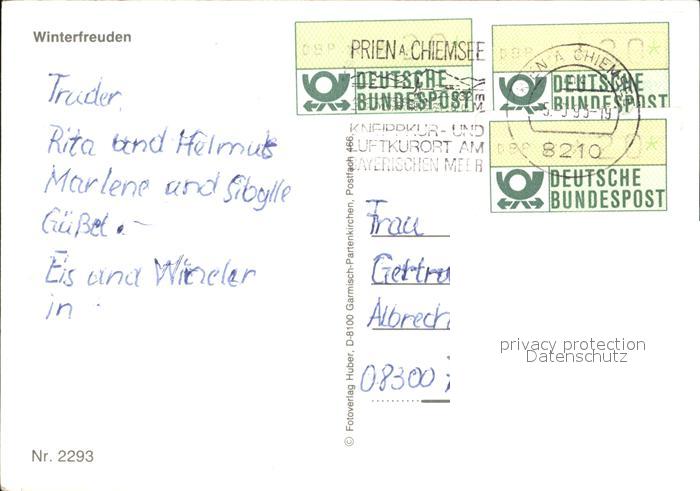 Winterfreuden
Truder,
Rita und Helmut
Marlene und Sibylle
Güßet.-
Eis und Winder
in
Nr. 2293
© Fotoverlag Huber, D-8100 Garmisch-Partenkirchen, Postfach 466,
DBP
PRIEN A. CHIEMSEE
DEUTSCHE
BUNDESPOST
KNEIPPKUR- UND
LUFTKURORT AM
BAYERISCHEN MEER
DEUTSCHE
BUNDESPOST
8210
DEUTSCHE
BUNDESPOST
Frau
Gertru
Albrech
08300
privacy protection
Datenschutz